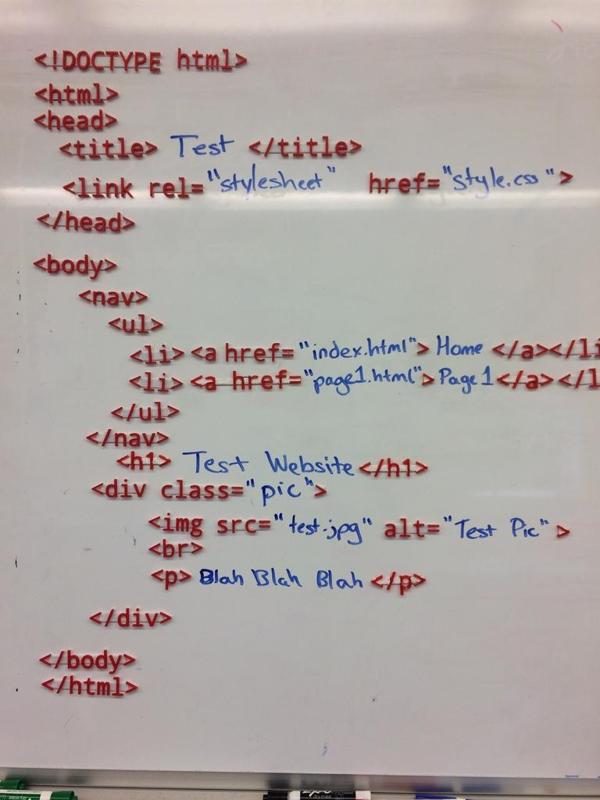 <!DOCTYPE html>
<html>
<head>
<title> Test </title>
<link rel="stylesheet" href="style.css">
</head>
<body>
<nav>
<ul>
<li><a href="index.html"> Home </a></li
<li><a href="page1.html"> Page 1 </a></l
</ul>
</nav>
<h1> Test Website </h1>
<div class="pic">
<img src="test.jpg" alt="Test Pic">
<br>
<p> Blah Blah Blah </p>
</div>
</body>
</html>